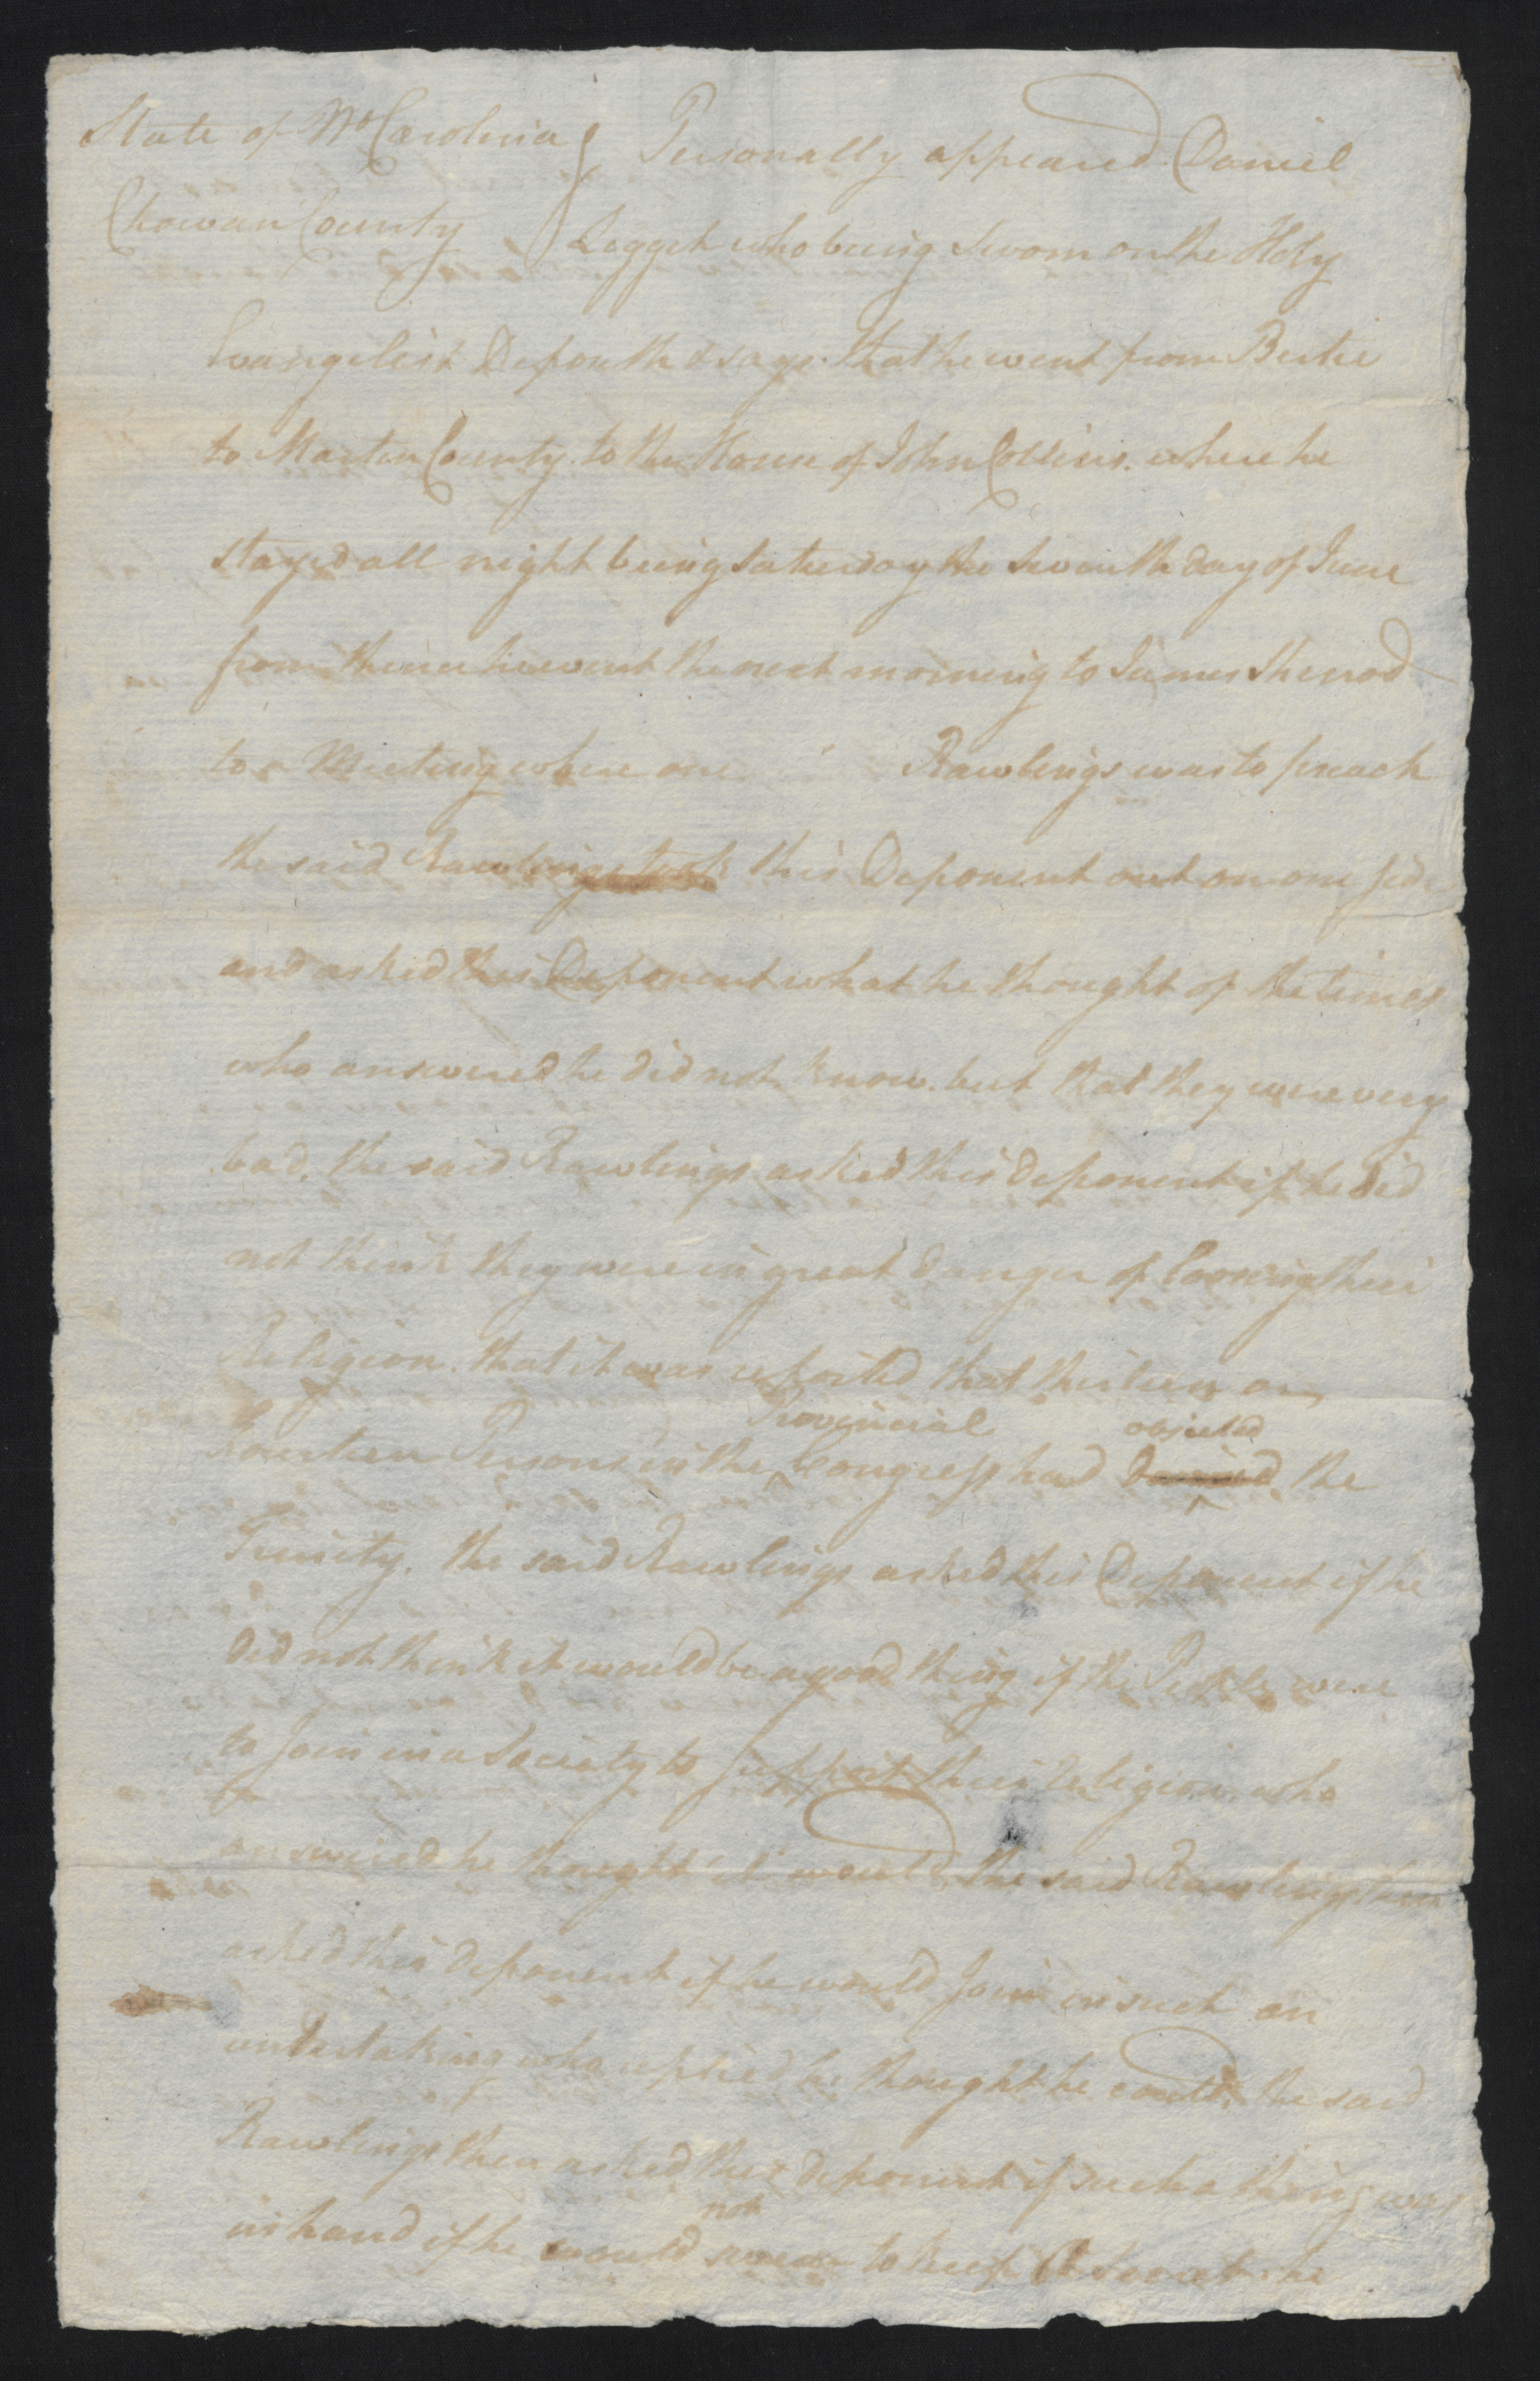 State of No Carolina } Personally appeared Daniel
Chowan County } Leggett who being Sworn on the Holy
Evangelist Deponeth & says that he went from Bertie
to Martin County to the House of John Collins. where he
stayed all night being Saterday the Seventh day of June
from thence he went the next morning to James Sherrod
to a Meeting where one Rawlings was to preach
the said Rawlings took this Deponent out on one side
and asked this Deponent what he thought of the times
who answered he did not know. but that they were very
bad. the said Rawlings asked this Deponent if he did
not think they were in great danger of Loosing their
Religion. that it was reported that thirteen or
Provincial objected
Fourteen Persons in the ^ Congress had denied ^ the
Trinity. the said Rawlings asked this Deponent if he
did not think it would be a good thing if the People were
to Join in a Society to support their Religion. who
answered he thought it would, the said Rawlings then
asked this deponent if he would Join in such an
undertaking who replied he thought he could, the said
Rawlings then asked this deponent if such a thing was
not
in hand if he would swear to keep a secret he